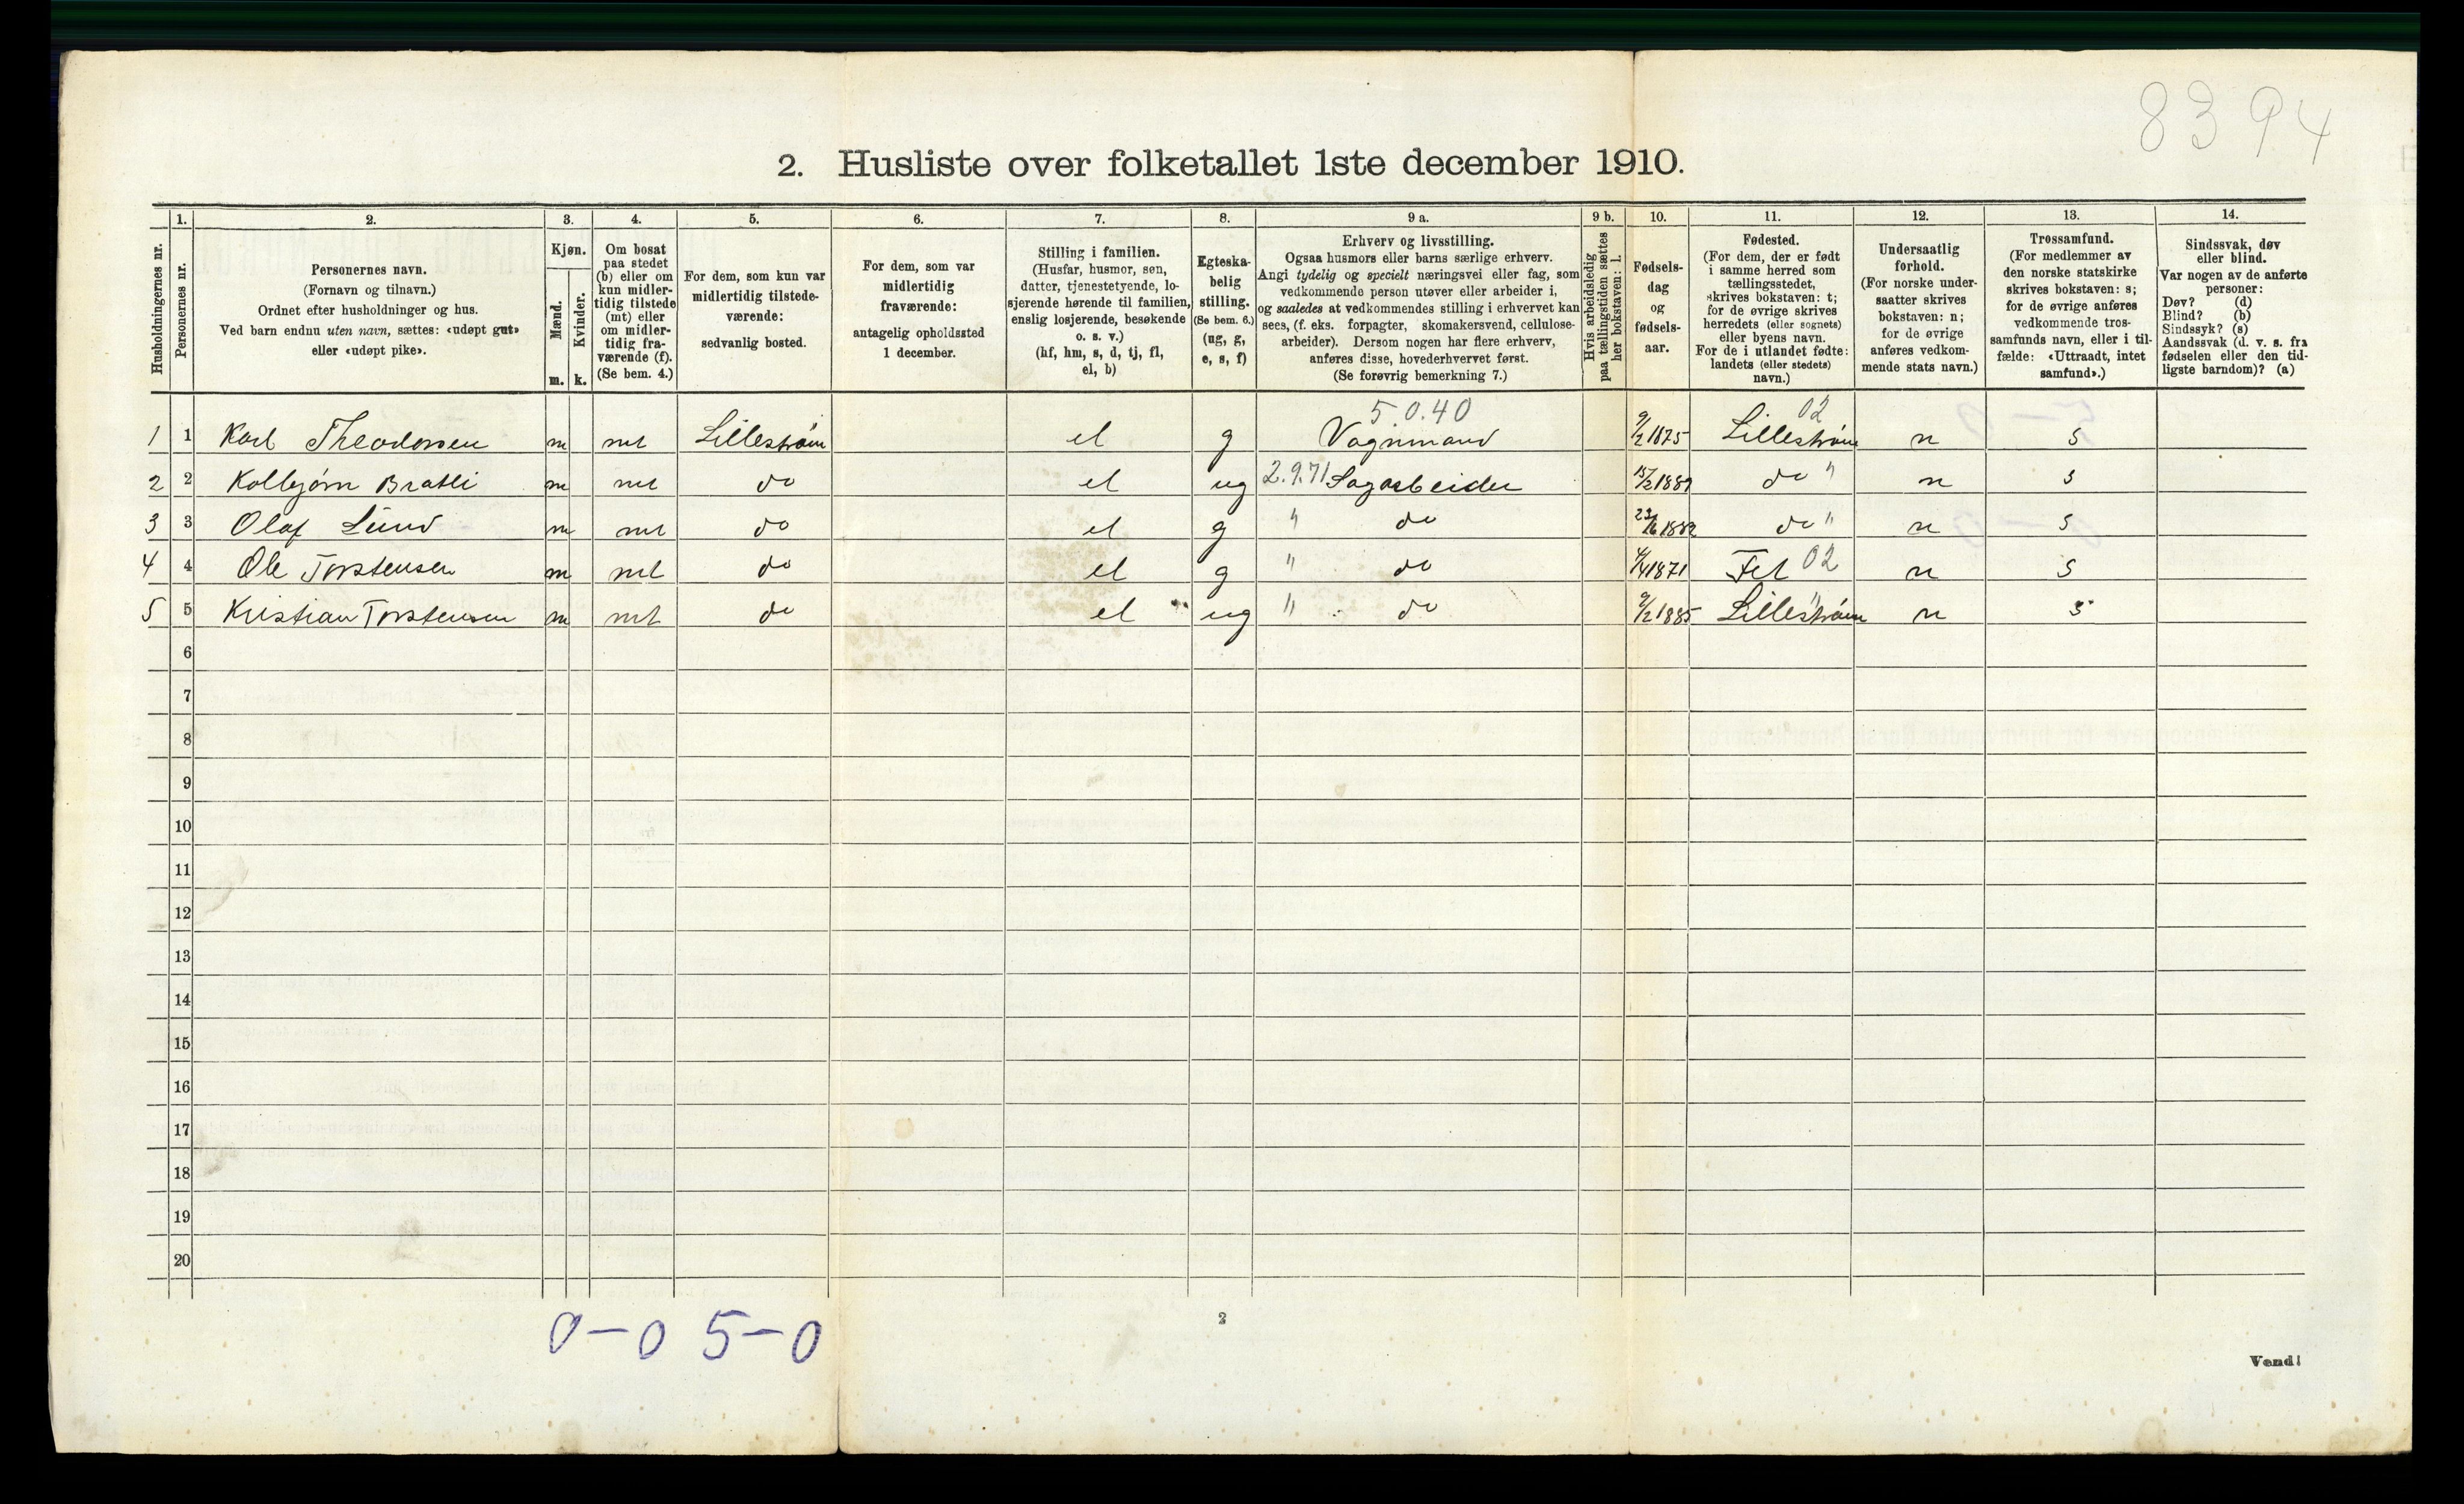 8394
2. Husliste over folketallet 1ste december 1910.
Husholdningernes nr.
1.
Personernes nr.
2.
Personernes navn.
(Fornavn og tilnavn.)
Ordnet efter husholdninger og hus.
Ved barn endnu uten navn, sættes: «udøpt gut»
eller «udøpt pike».
3.
Kjøn.
Mænd.
m.
Kvinder.
k.
4.
Om bosat
paa stedet
(b) eller om
kun midler-
tidig tilstede
(mt) eller
om midler-
tidig fra-
værende (f).
(Se bem. 4.)
5.
For dem, som kun var
midlertidig tilstede-
værende:
sedvanlig bosted.
6.
For dem, som var
midlertidig
fraværende:
antagelig opholdssted
1 december.
7.
Stilling i familien.
(Husfar, husmor, søn,
datter, tjenestetyende, lo-
sjerende hørende til familien,
enslig losjerende, besøkende
o. s. v.)
(hf, hm, s, d, tj, fl,
el, b)
8.
Egteska-
belig
stilling.
(Se bem. 6.)
(ug, g,
e, s, f)
9 a.
Erhverv og livsstilling.
Ogsaa husmors eller barns særlige erhverv.
Angi tydelig og specielt næringsvei eller fag, som
vedkommende person utøver eller arbeider i,
og saaledes at vedkommendes stilling i erhvervet kan
sees, (f. eks. forpagter, skomakersvend, cellulose-
arbeider). Dersom nogen har flere erhverv,
anføres disse, hovederhvervet først.
(Se forøvrig bemerkning 7.)
9 b.
Hvis arbeidsledig
paa tællingstiden sættes
her bokstaven: l.
10.
Fødsels-
dag
og
fødsels-
aar.
11.
Fødested.
(For dem, der er født
i samme herred som
tællingsstedet,
skrives bokstaven: t;
for de øvrige skrives
herredets (eller sognets)
eller byens navn.
For de i utlandet fødte:
landets (eller stedets)
navn.)
12.
Undersaatlig
forhold.
(For norske under-
saatter skrives
bokstaven: n;
for de øvrige
anføres vedkom-
mende stats navn.)
13.
Trossamfund.
(For medlemmer av
den norske statskirke
skrives bokstaven: s;
for de øvrige anføres
vedkommende tros-
samfunds navn, eller i til-
fælde: «Uttraadt, intet
samfund».)
14.
Sindssvak, døv
eller blind.
Var nogen av de anførte
personer:
Døv? (d)
Blind? (b)
Sindssyk? (s)
Aandssvak (d. v. s. fra
fødselen eller den tid-
ligste barndom)? (a)
5.0.40 02
1 1 Karl Theodorsen m mt Lillestrøm el g Vognmand 9/2 1875 Lillestrøm n s
2 2 Kolbjørn Bratli m mt do el ug 2.9.71 Sagarbeider 15/2 1889 do " n s
3 3 Olaf Lund m mt do el g " do 1882 do " n s
4 4 Ole Torstensen m mt do el g " do 4/4 1871 Fet 02 n s
5 5 Kristian Torstensen m mt do el ug " do 9/2 1885 Lillestrøm " n s
6
7
8
9
10
11
12
13
14
15
16
17
18
19
20
0-0 5-0
2
Vend!